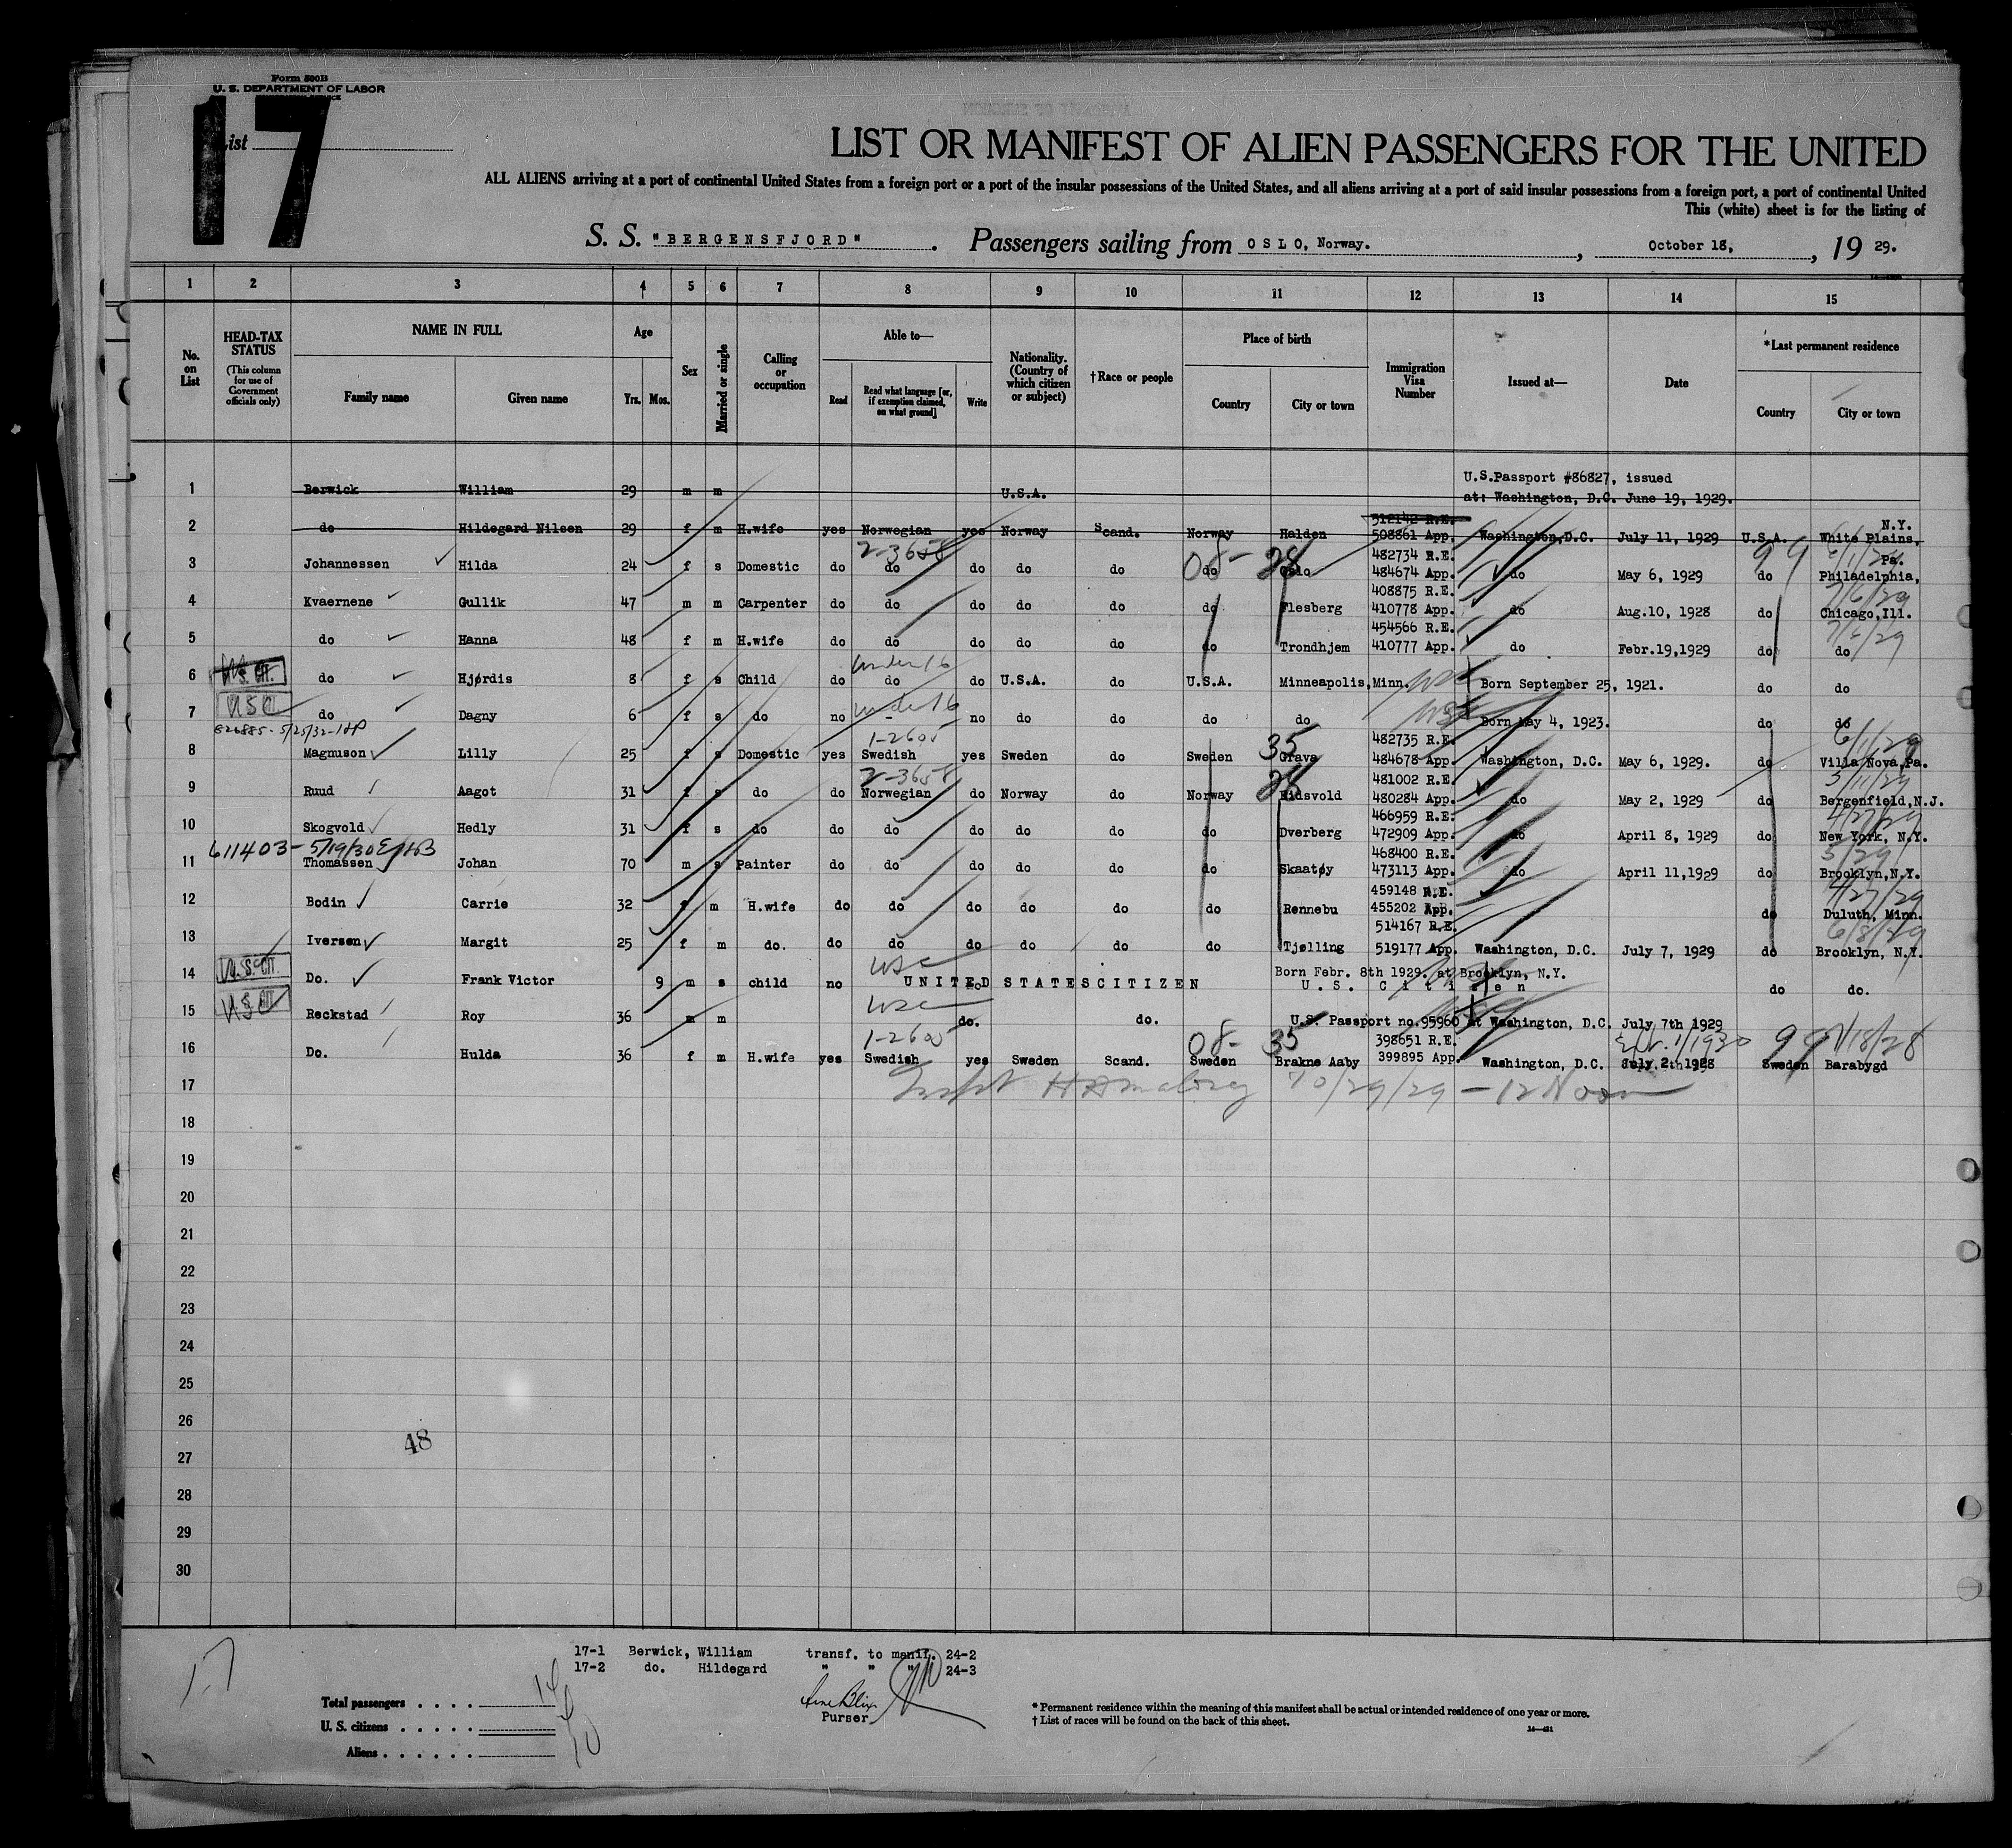 Form 500B
U. S. DEPARTMENT OF LABOR
17
List
LIST OR MANIFEST OF ALIEN PASSENGERS FOR THE UNITED
ALL ALIENS arriving at a port of continental United States from a foreign port or a port of the insular possessions of the United States, and all aliens arriving at a port of said insular possessions from a foreign port, a port of continental United
This (white) sheet is for the listing of
S. S. "BERGENSFJORD". Passengers sailing from OSLO, Norway. , October 18, , 19 29.
1 2 3 4 5 6 7 8 9 10 11 12 13 14 15
No. on List
HEAD-TAX STATUS (This column for use of Government officials only)
NAME IN FULL
Family name Given name
Age
Yrs. Mos.
Sex
Married or single
Calling or occupation
Able to—
Read
Read what language [or, if exemption claimed, on what ground]
Write
Nationality. (Country of which citizen or subject)
†Race or people
Place of birth
Country City or town
Immigration Visa Number
Issued at—
Date
*Last permanent residence
Country City or town
U.S.Passport #86827, issued
1 Berwick William 29 m m U.S.A. at: Washington, D.C. June 19, 1929.
512142 R.E. N.Y.
2 do Hildegard Nilsen 29 f m H.wife yes Norwegian yes Norway Scand. Norway Halden 508861 App. Washington,D.C. July 11, 1929 U.S.A. White Plains,
2-3658 482734 R.E. 99 6/1/29 Pa.
3 Johannessen Hilda 24 f s Domestic do do do do do do 08- 28 Oslo 484674 App. do May 6, 1929 do Philadelphia,
408875 R.E. 7/6/29
4 Kvaernene Gullik 47 m m Carpenter do do do do do do Flesberg 410778 App. do Aug.10, 1928 do Chicago,Ill.
454566 R.E. 7/6/29
5 do Hanna 48 f m H.wife do do do do do do Trondhjem 410777 App. do Febr.19,1929 do do
U.S. CIT. under 16
6 do Hjørdis 8 f s Child do do do U.S.A. do U.S.A. Minneapolis,Minn. USC Born September 25, 1921. do do
USC under 16
7 do Dagny 6 f s do no - no do do do do USC Born May 4, 1923. do do
826885-5/25/32- 1-2605 482735 R.E. 6/1/29
8 Magnuson Lilly 25 f s Domestic yes Swedish yes Sweden do Sweden 35 Grava 484678 App. Washington, D.C. May 6, 1929. do Villa Nova,Pa.
2-3658 481002 R.E. 5/11/29
9 Ruud Aagot 31 f s do do Norwegian do Norway do Norway 28 Eidsvold 480284 App. do May 2, 1929 do Bergenfield,N.J.
466959 R.E. 4/27/29
10 Skogvold Hedly 31 f s do do do do do do do Dverberg 472909 App. do April 8, 1929 do New York, N.Y.
611403-5/19/30 468400 R.E. 5/29
11 Thomassen Johan 70 m s Painter do do do do do do Skaatøy 473113 App. do April 11,1929 do Brooklyn,N.Y.
459148 R.E. 4/27/29
12 Bodin Carrie 32 f m H.wife do do do do do do Rennebu 455202 App. do Duluth, Minn.
514167 R.E. 6/8/29
13 Iversen Margit 25 f m do. do do do do do do Tjølling 519177 App. Washington, D.C. July 7, 1929 do Brooklyn, N.Y.
U.S. CIT. USC Born Febr. 8th 1929. at Brooklyn, N.Y.
14 Do. Frank Victor 9 m s child no no UNITED STATES CITIZEN U.S. Citizen do do.
USC USC
15 Reckstad Roy 36 m m do. do. U.S. Passport no.95960 at Washington, D.C. July 7th 1929
1-2605 398651 R.E. 1/1930 99 18/28
16 Do. Hulda 36 f m H.wife yes Swedish yes Sweden Scand. 08- Sweden 35 Brakne Aaby 399895 App Washington, D.C. July 2th 1928 Sweden Barabygd
17 Inspt 10/29/29 - 12 Noon
18
19
20
21
22
23
24
25
26
48
27
28
29
30
17-1 Berwick, William transf. to manif. 24-2
17-2 do. Hildegard " " " 24-3
17
Purser
Total passengers . . . . 14
U. S. citizens . . . . . 4
Aliens . . . . . . 10
* Permanent residence within the meaning of this manifest shall be actual or intended residence of one year or more.
† List of races will be found on the back of this sheet.
14—421